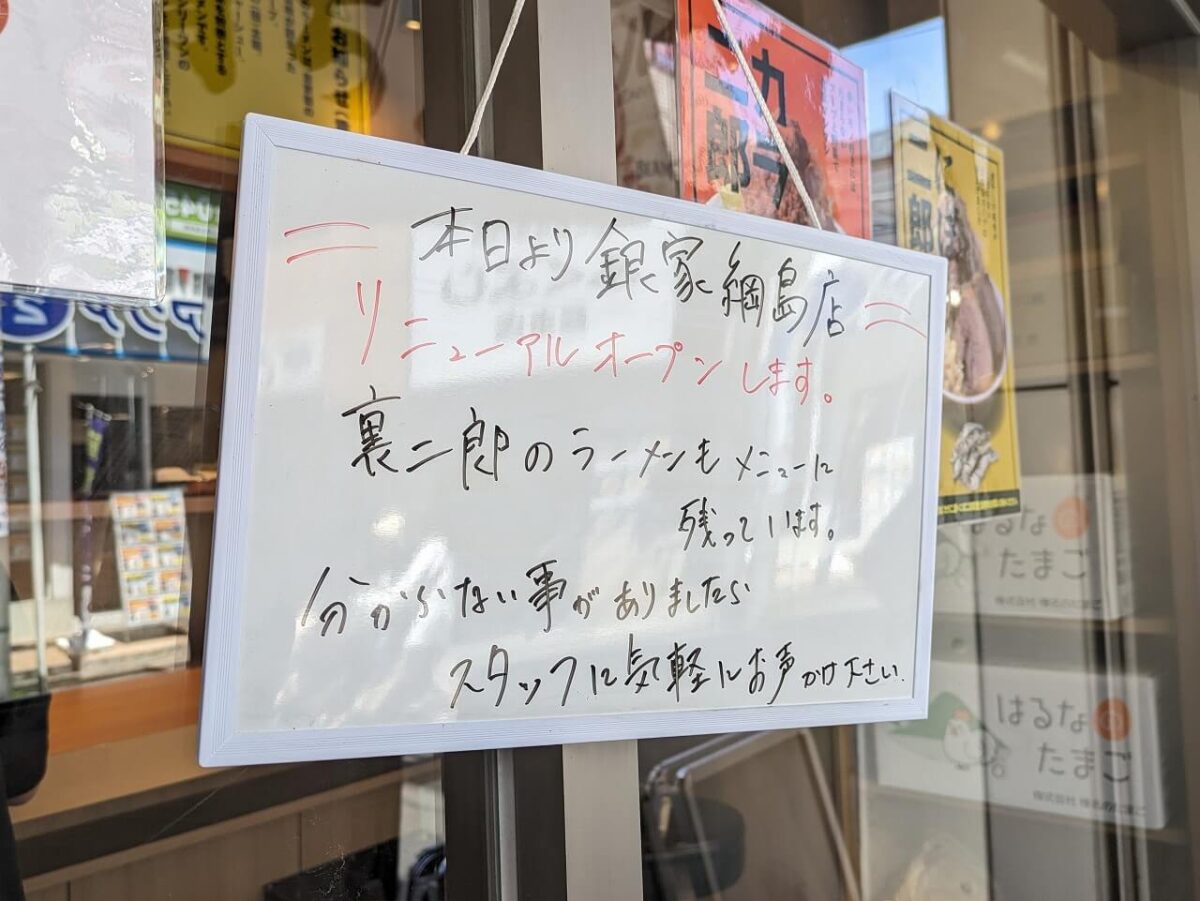 本日より銀家綱島店
リニューアルオープンします。
裏二郎のラーメンもメニューに
残っています。
分からない事がありましたら
スタッフに気軽にお声かけ下さい.
カラ
二郎
二郎
はるな
たまご
はるな
たまご